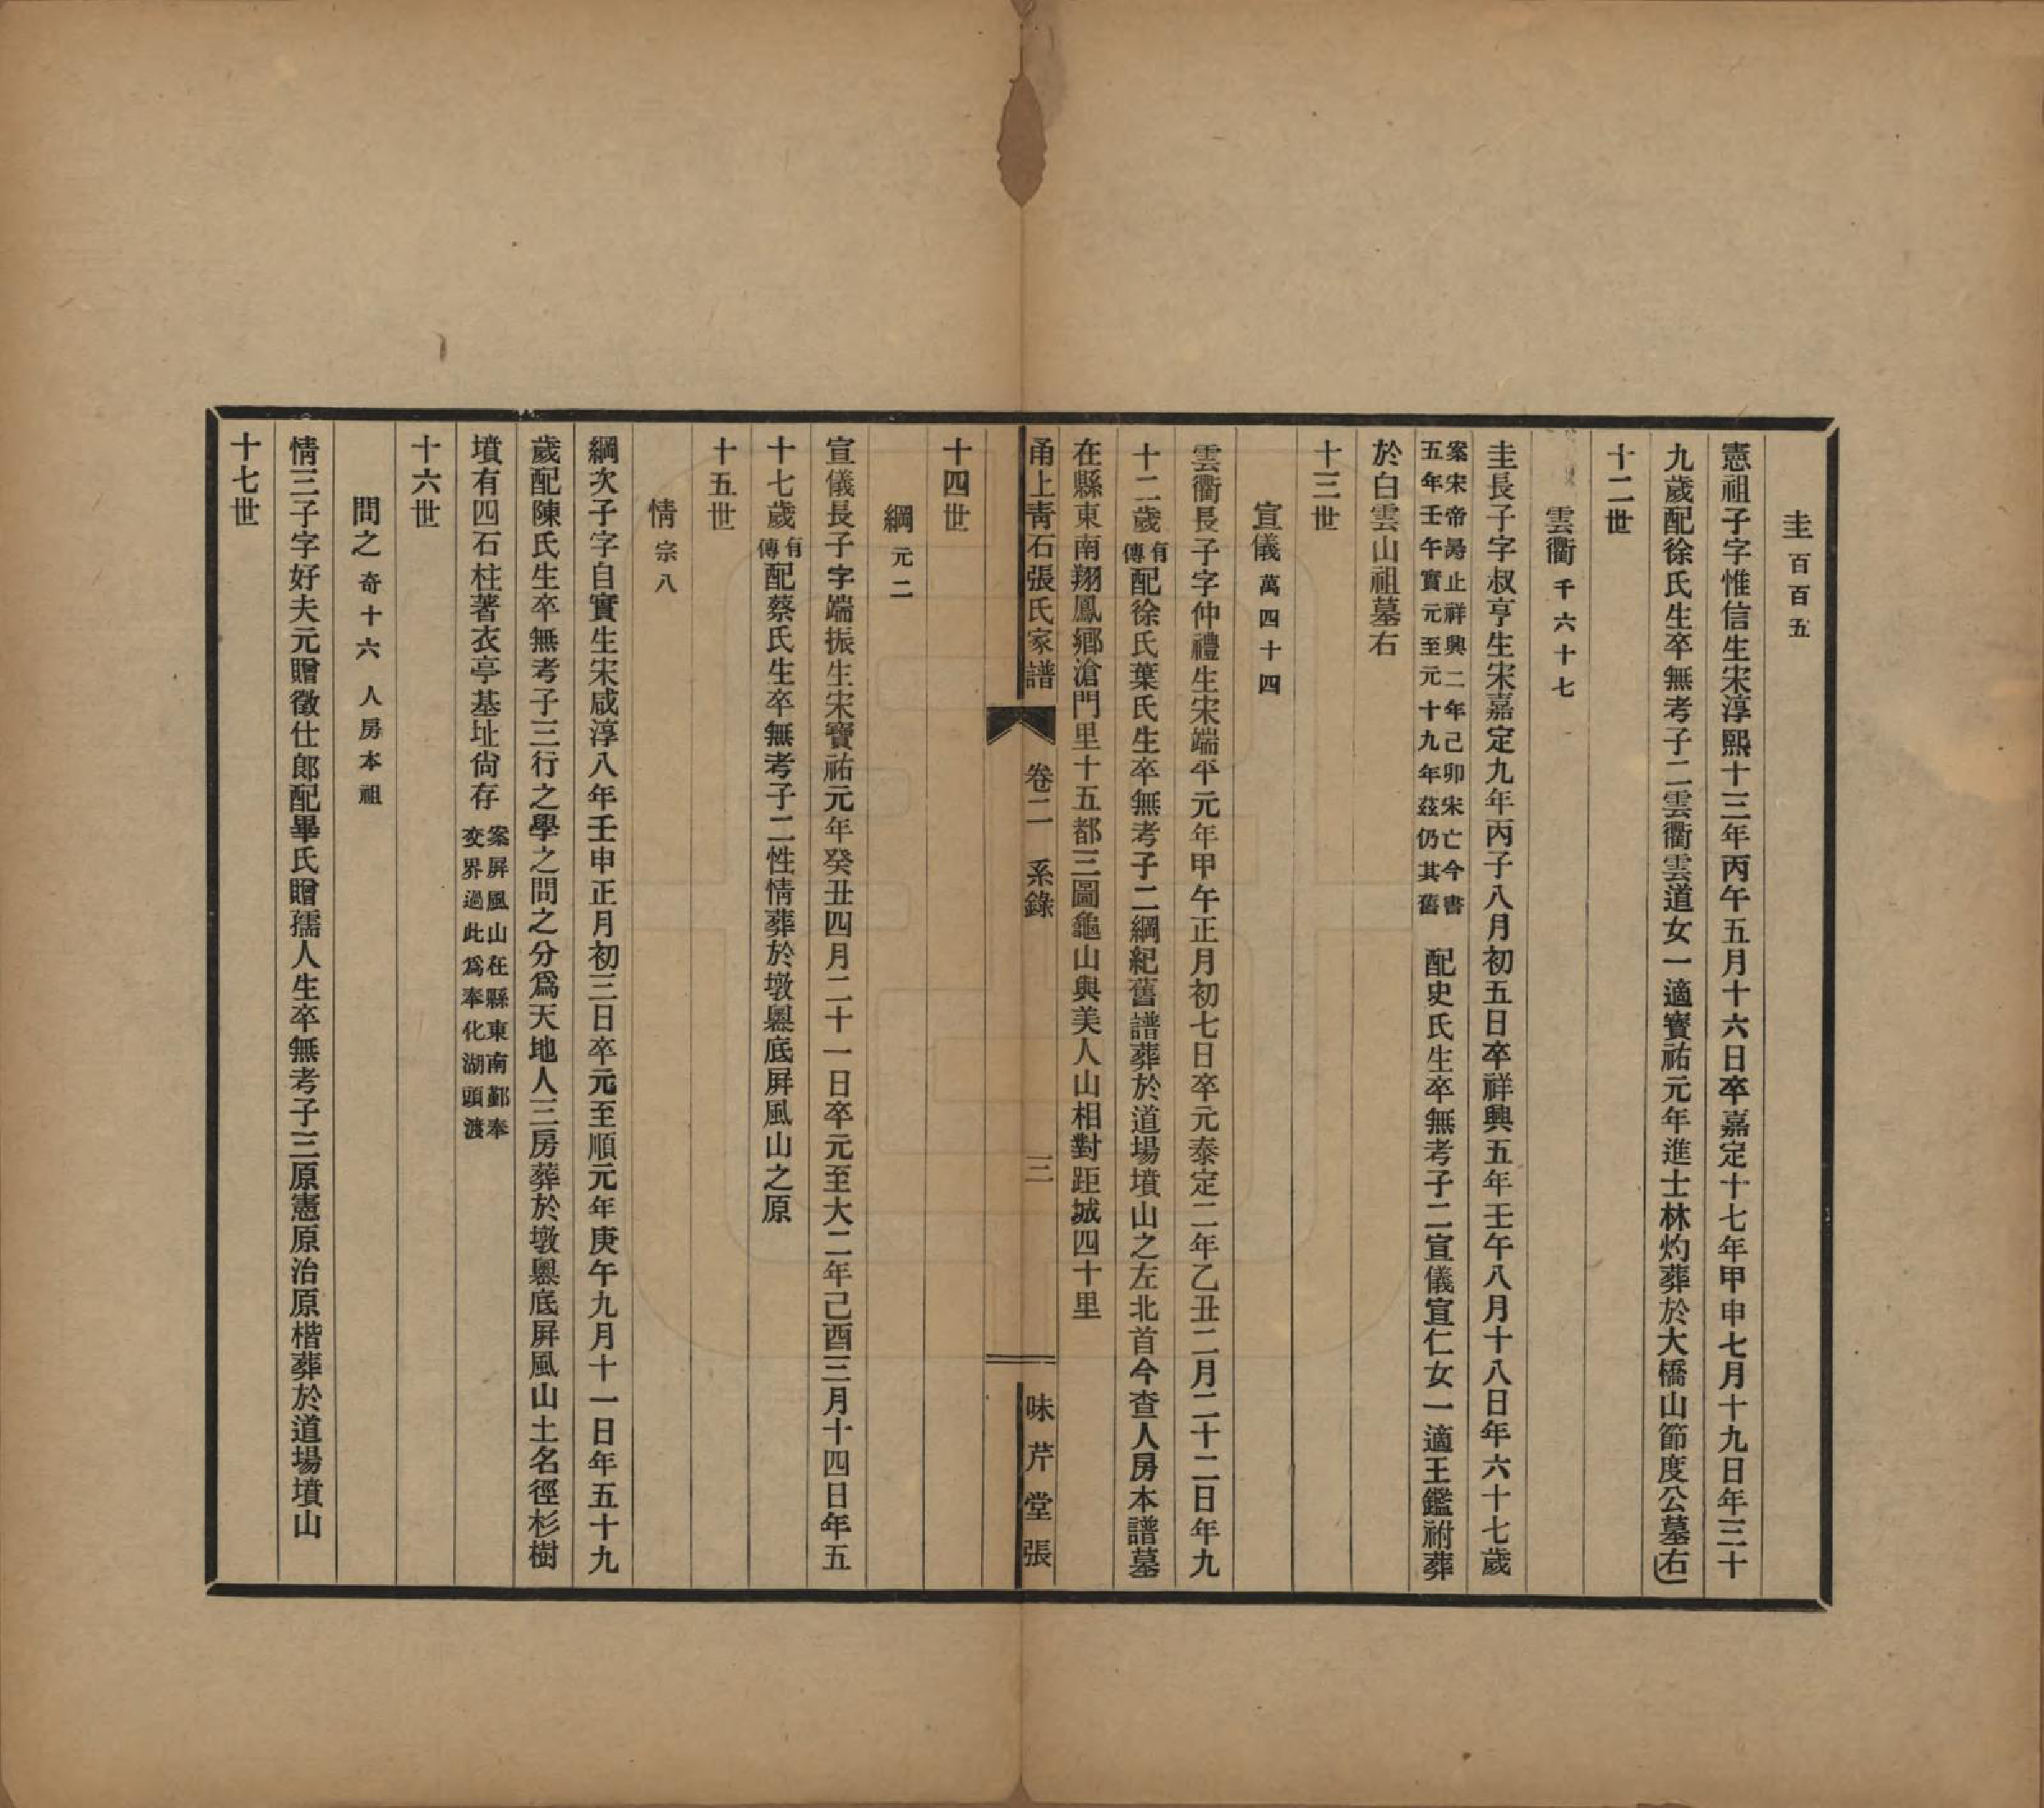 圭百百五
憲祖子字惟信生宋淳熙十三年丙午五月十六日卒嘉定十七年甲申七月十九日年三十
九歲配徐氏生卒無考子二雲衢雲道女一適寶祐元年進士林灼葬於大橋山節度公墓右
十二世
雲衢千六十七
圭長子字叔亨生宋嘉定九年丙子八月初五日卒祥興五年壬午八月十八日年六十七歲
案宋帝昺止祥興二年己卯宋亡今書五年壬午實元至元十九年茲仍其舊 配史氏生卒無考子二宣儀宣仁女一適王鑑祔葬
於白雲山祖墓右
十三世
宣儀萬四十四
雲衢長子字仲禮生宋端平元年甲午正月初七日卒元泰定二年乙丑二月二十二日年九
十二歲有傳配徐氏葉氏生卒無考子二綱紀舊譜葬於道場墳山之左北首今查人房本譜墓
在縣東南翔鳳鄉滄門里十五都三圖龜山與美人山相對距城四十里
甬上青石張氏家譜 卷二 系錄 三 味芹堂張
十四世
綱元二
宣儀長子字端振生宋寶祐元年癸丑四月二十一日卒元至大二年己酉三月十四日年五
十七歲有傳配蔡氏生卒無考子二性情葬於墩嶴底屏風山之原
十五世
情宗八
綱次子字自實生宋咸淳八年壬申正月初三日卒元至順元年庚午九月十一日年五十九
歲配陳氏生卒無考子三行之學之問之分爲天地人三房葬於墩嶴底屏風山土名徑杉樹
墳有四石柱著衣亭基址尙存案屏風山在縣東南鄞奉交界過此爲奉化湖頭渡
十六世
問之奇十六 人房本祖
情三子字好夫元贈徵仕郎配畢氏贈孺人生卒無考子三原憲原治原楷葬於道場墳山
十七世